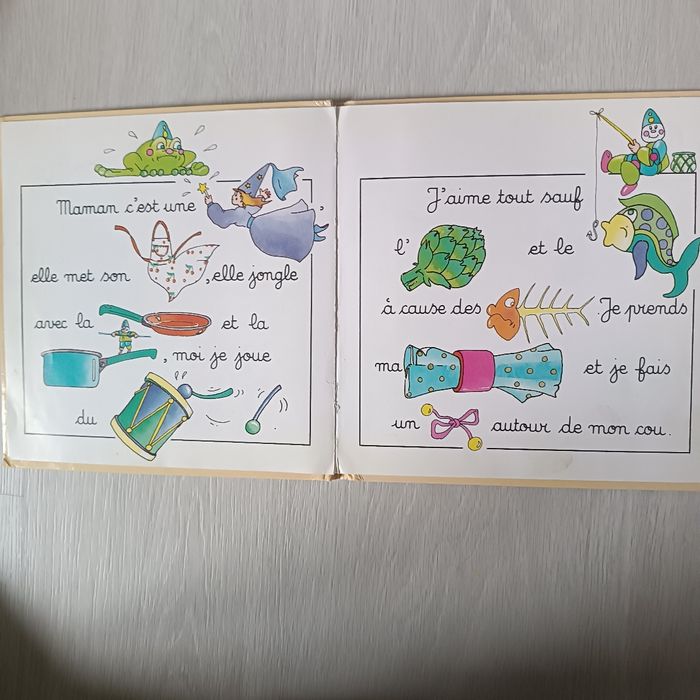 Maman c'est une ,
elle met son , elle jongle
avec la et la
, moi je joue
du
J'aime tout sauf
l' et le
à cause des . Je prends
ma et je fais
un autour de mon cou.